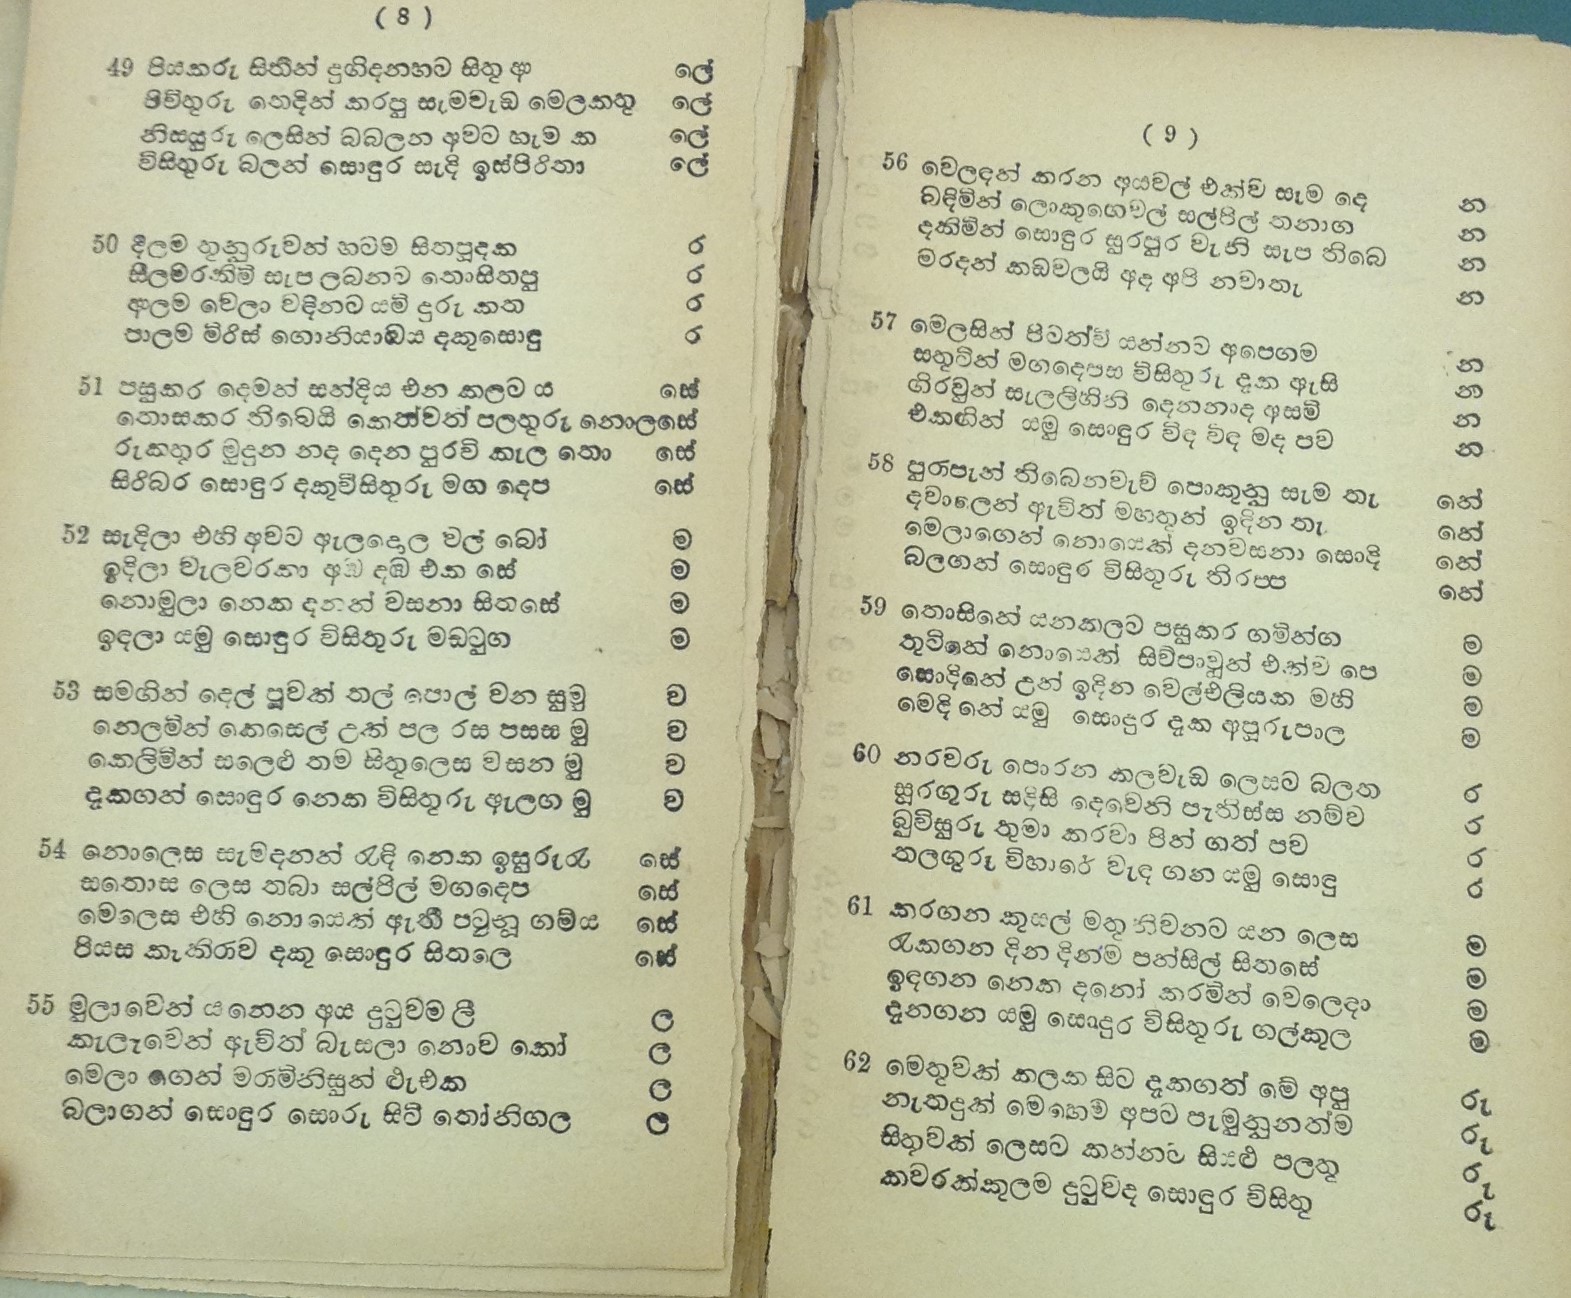 ( 8 )
49 පියකරු සිතින් දුගිදනහට සිතු ආ ලේ
පිවිතුරු තෙදින් කරපු සැමවැඩ මෙලකතු ලේ
නිසයුරු ලෙසින් බබලන අවට හැම ක ලේ
විසිතුරු බලන් සොඳුර සැදි ඉස්පිරිතා ලේ
50 දීලම තුනුරුවන් හටම සිතපූදක ර
සීලමරකිමි සැප ලබනට තොසිතපු ර
ආලම වෙලා වඳිනට යමි දුරු කත ර
පාලම මිරිස් ගොනියාඔය දකුසොඳු ර
51 පසුකර දෙමන් සන්දිය එන කලට ය සේ
තොසකර තිබෙයි කෙත්වත් පලතුරු නොලසේ
රුකතුර මුදුන නද දෙන පුරවි කැල තො සේ
සිරිබර සොඳුර දකුවිසිතුරු මග දෙප සේ
52 සැදිලා එහි අවට ඇලදොල වල් බෝ ම
ඉදිලා වැලවරකා අඹ දඹ එක සේ ම
නොමුලා නෙක දනන් වසනා සිතසේ ම
ඉඳලා යමු සොඳුර විසිතුරු මඩටුග ම
53 සමගින් දෙල් පුවක් තල් පොල් වන සුමු ව
නෙලමින් කෙසෙල් උක් පල රස පසස මු ව
කෙලිමින් සලෙළු තම සිතුලෙස වසන මු ව
දැකගන් සොඳුර නෙක විසිතුරු ඇලග මු ව
54 නොලෙස සැමදනන් රැඳි නෙක ඉසුරුරැ සේ
සතොස ලෙස තබා සල්පිල් මගදෙප සේ
මෙලෙස එහි නොයෙක් ඇතී පටුනූ ගම්ය සේ
පියස කැකිරාව දකු සොඳුර සිතලෙ සේ
55 මුලාවෙන් යනෙන අය දුටුවම ලී ල
කැලෑවෙන් ඇවිත් බැසලා නොව කෝ ල
මෙලා ගෙන් මරාමිනිසුන් ළුඑක ල
බලාගන් සොඳුර සොරු සිටි තෝනිගල ල
( 9 )
56 වෙලඳන් කරන අයවල් එක්ව සැම දෙ න
බඳිමින් ලොකුගෙවල් සල්පිල් තනාග න
දකිමින් සොඳුර සුරපුර වැනි සැප තිබෙ න
මරදන් කඩවලයි අද අපි නවාතැ න
57 මෙලසින් පිටත්වී යන්නට අපෙගම න
සතුටින් මගදෙපස විසිතුරු දැක ඇසි න
ගිරවුන් සැලලිහිනි දෙනනාද අසමි න
එකඟින් යමු සොඳුර විද විද මද පව න
58 පුරාපැන් තිබෙනවැව් පොකුනු සැම තැ නේ
දවාලෙන් ඇවිත් මහතුන් ඉදින තැ නේ
මෙලාගෙන් නොයෙක් දනවසනා සොදි නේ
බලගන් සොඳුර විසිතුරු තිරප්ප නේ
59 තොසිනේ යනකලට පසුකර ගමින්ග ම
තුටිනේ නොයෙක් සිව්පාවුන් එක්ව පෙ ම
සොදිනේ උන් ඉදින වෙල්එලියක මහි ම
මෙදිනේ යමු සොදුර දැක අපූරුපාල ම
60 නරවරු පොරන කලවැඩ ලෙසට බලත ර
සුරගුරු සදිසි දෙවෙනි පැතිස්ස නම්ව ර
බුවිසුරු තුමා කරවා පින් ගත් පව ර
තලගුරු විහාරේ වැඳ ගන යමු සොඳු ර
61 කරගන කුසල් මතු නිවනට යන ලෙස ම
රැකගන දින දින්ම පන්සිල් සිතසේ ම
ඉඳගන නෙක දනෝ කරමින් වෙලෙදා ම
දැනගන යමු සොඳුර විසිතුරු ගල්කුල ම
62 මෙතුවක් කලක සිට දැකගත් මේ අපු රු
නැතදුක් මෙහෙම අපට පැමුනුනත්ම රු
සිතුවක් ලෙසට කන්නට සියළු පලතු රු
කවරක්කුලම දුටුවිද සොඳුර විසිතු රු